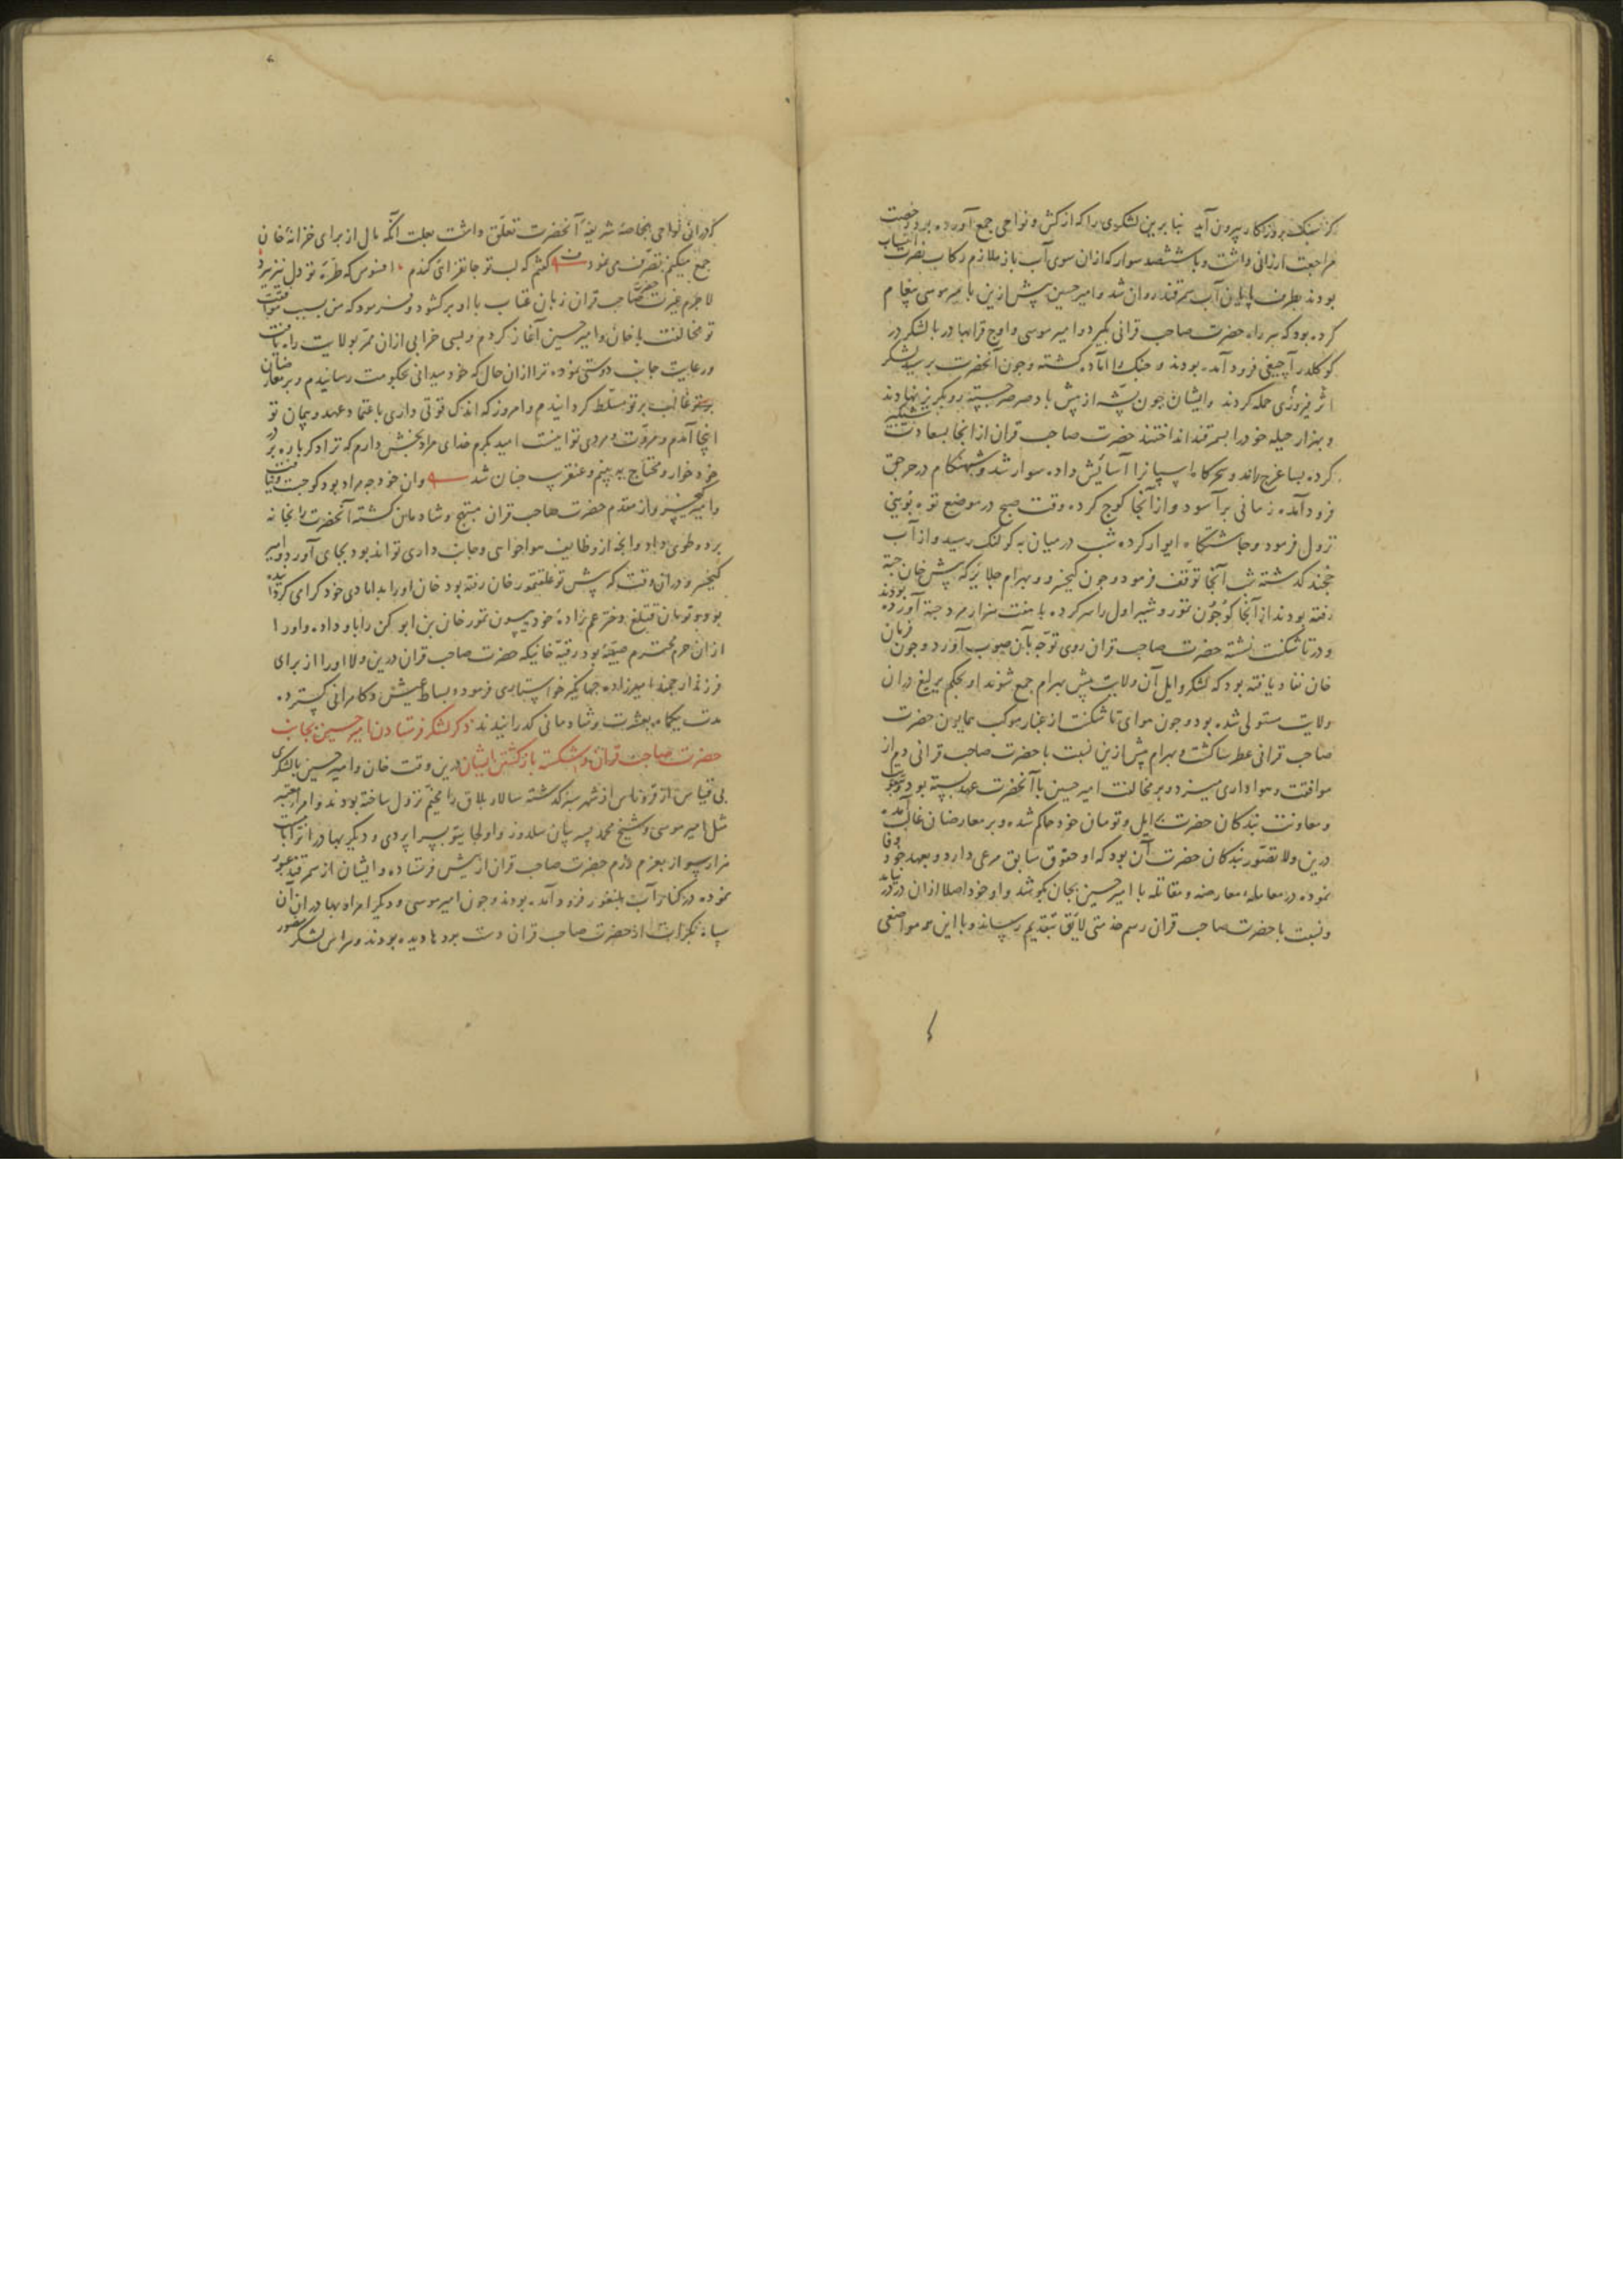 کز سنک روزکار بیرون آید بنا برین لشکری را که از کش و نواحی جمع آورده بود رخصت
مراجعت ارزانی داشت و با ششصد سوار که ازان سوی آب باز ملازم رکاب نصرت انتساب
بودند بطرف پایان آب سمرقند روان شد و امیر حسین پیش ازین با امیر موسی پیغام
کرده بود که سر راه حضرت صاحب قرانی بگیرد و امیر موسی و اوج قرابهادر با لشکر در
کوکلدر آچیغی فرود آمده بودند و جنک را آماده کشته و چون آنحضرت برسید لشکر
اثر فیروزی حمله کردند و ایشان چون پشه از پیش باد صرصر جسته رو بکریز نهادند
و بهزار حیله خود را بسمرقند انداختند حضرت صاحب قران از انجا بسعادت شبکیر
کرده بساغرج راند و سحرکاه سپاه را آسایش داده سوار شد و شبهنکام در
فرود آمده زمانی برآسود و از آنجا کوچ کرده وقت صبح در موضع
نزول فرمود و چاشتکاه ایوار کرده شب درمیان به کوکنک رسید و از آب
خجند کذشته شب آنجا توقف فرمود و چون کیخسرو و بهرام جلایر که پیش خان جته
رفته بودند از آنجا کوجون تمور و شیراول را سر کرده با هفت هزار مرد جته آورده بودند
و در تاشکنت نشسته حضرت صاحب قران روی توجه بآن صوب آورد و چون فرمان
خان نفاد یافته بود که لشکر و ایل آن ولایت پیش بهرام جمع شوند او بحکم یرلیغ دران
ولایت مستولی شده بود و چون هوای تاشکنت از غبار موکب همایون حضرت
صاحب قرانی عطرسا کشت و بهرام پیش ازین نسبت با حضرت صاحب قرانی دم از
موافقت و هواداری میزد و بر مخالفت امیر حسین با آنحضرت عهد بسته بود
و معاونت بندکان حضرت بایل و تومان خود حاکم شده و بر معارضان غالب آمده
درین ولا تصور بندکان حضرت آن بود که او حقوق سابق مرعی دارد و بعهد خود وفا
نموده در معامله معارضه و مقاتله با امیر حسین بجان بکوشد و او خود اصلا ازان در نیامد
و نسبت با حضرت صاحب قران رسم خدمتی لایق بتقدیم نرسانید و با این همه مواضعی
که دران نواحی بخاصه شریفه آنحضرت تعلق داشت بعلت آنکه مال از برای خزانه خان
جمع میکنم تصرف می نمود کفتم که لب تو جانفزای کندم افسوس که طره تو دل نیز ببرد
لاجرم غیرت حضرت صاحب قران زبان عتاب با او بر کشود و فرمود که من بسبب موافقت
تو مخالفت با خان و امیر حسین آغاز کردم و بسی خرابی ازان ممر بولایت راه یافت
و رعایت جانب دوستی نموده ترا ازان حال که خود میدانی بحکومت رسانیدم و بر معارضان
غالب مسلط کردانیدم و امروز که اندک قوتی داری باعتماد عهد و پیمان تو
اینجا آمدم و مروت و مردی تو اینست امید بکرم خدای مراد بخش دارم که ترا دکر باره بر در
خود خوار و محتاج به بینم و عنقریب چنان شد وان خود چه مراد بود کو جست و نیافت
و امیر کیخسرو از مقدم حضرت صاحب قران مبتهج و شادمان کشته آنحضرت را بخانه
برد و طوی داد و آنچه از وظایف هواخواهی و جانب داری تواند بود بجای آورد و امیر
کیخسرو دران وقت که پیش توغلقتمور خان رفته بود خان او را بدامادی خود کرامی کردانیده
بود و تومان قتلغ دختر عم زاده خود ییسون تمور خان بن ابوکن را باو داد و او را
ازان حرم محترم صبیه بود رقیه خانیکه حضرت صاحب قران درین ولا او را از برای
فرزند ارجمند امیرزاده جهانکیر خواستاری فرمود و بساط عیش و کامرانی بکسترد
مدت یکماه بعشرت و شادمانی کذرانیدند ذکر لشکر فرستادن امیر حسین بجانب
حضرت صاحب قران و شکسته باز کشتن ایشان درین وقت خان و امیر حسین با لشکری
بی قیاس از قروناس از شهر سبز کذشته سالار بلاق را مخیم نزول ساخته بودند و امراء معتبر
مثل امیر موسی و شیخ محمد پسر بیان سلدوز و اولجایتو پسر اپردی و دیکر بهادران را با
هزار سوار بعزم رزم حضرت صاحب قران از پیش فرستاده و ایشان از سمرقند عبور
نموده در کنار آب بلنغور فرود آمده بودند و چون امیر موسی و دیکر امراء بهادر ازان
سپاه بکرات از حضرت صاحب قران دست بردها دیده بودند و هراس لشکر منصور